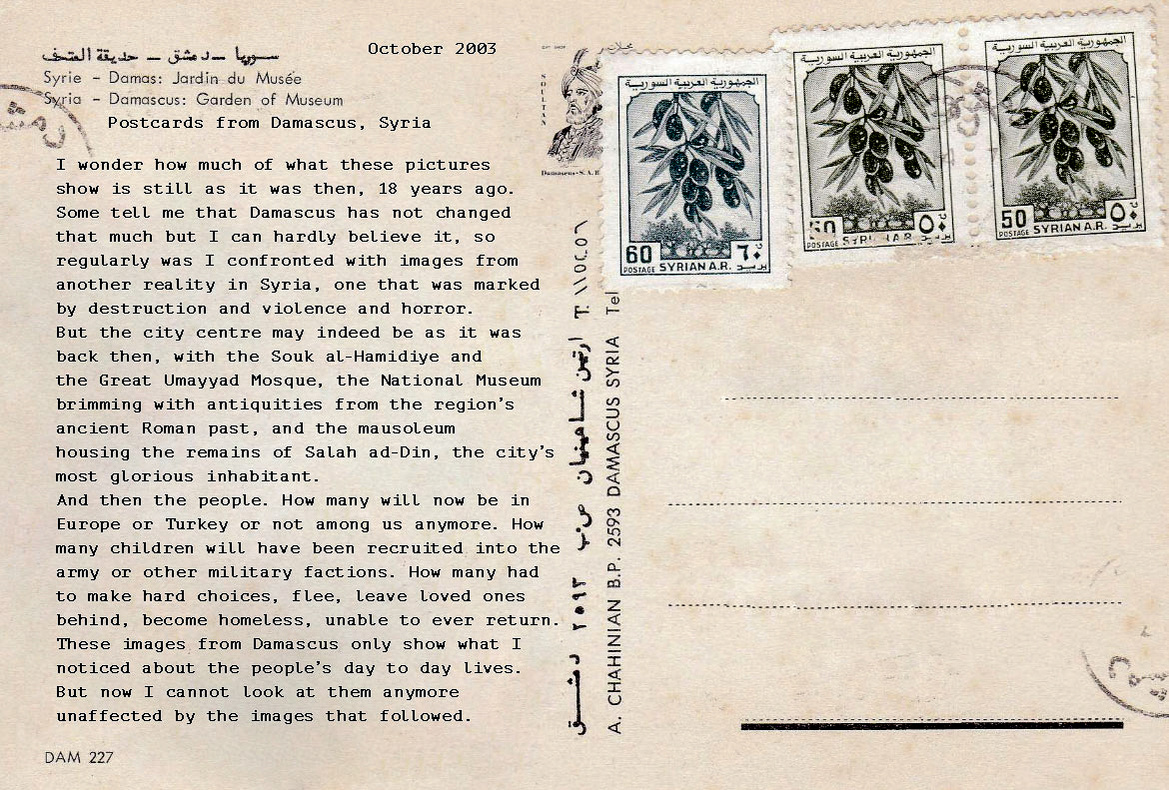 October 2003
سوريا – دمشق – حديقة المتحف
Syrie – Damas: Jardin du Musée
Syria – Damascus: Garden of Museum
Postcards from Damascus, Syria
I wonder how much of what these pictures
show is still as it was then, 18 years ago.
Some tell me that Damascus has not changed
that much but I can hardly believe it, so
regularly was I confronted with images from
another reality in Syria, one that was marked
by destruction and violence and horror.
But the city centre may indeed be as it was
back then, with the Souk al-Hamidiye and
the Great Umayyad Mosque, the National Museum
brimming with antiquities from the region's
ancient Roman past, and the mausoleum
housing the remains of Salah ad-Din, the city's
most glorious inhabitant.
And then the people. How many will now be in
Europe or Turkey or not among us anymore. How
many children will have been recruited into the
army or other military factions. How many had
to make hard choices, flee, leave loved ones
behind, become homeless, unable to ever return.
These images from Damascus only show what I
noticed about the people's day to day lives.
But now I cannot look at them anymore
unaffected by the images that followed.
DAM 227
SOULTAN
Damascus-S.A.R
ارتين شاهينيان ص.ب ٢٥٩٣ دمشق
A. CHAHINIAN B.P. 2593 DAMASCUS SYRIA Tel
الجمهورية العربية السورية
60 ٦٠
POSTAGE SYRIAN A.R. بريد
الجمهورية العربية السورية
50 ٥٠
POSTAGE SYRIAN A.R. بريد
الجمهورية العربية السورية
50 ٥٠
POSTAGE SYRIAN A.R. بريد
دمشق